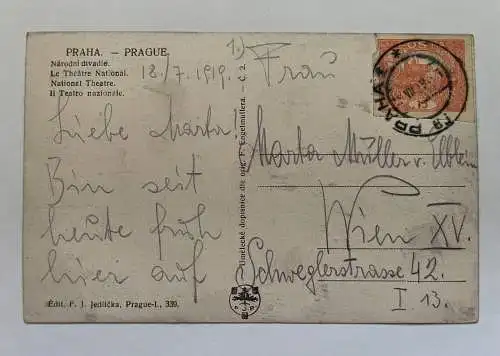 PRAHA. – PRAGUE.
Národní divadlo.
Le Théâtre National.
National Theatre.
Il Teatro nazionale.
1.)
18./7. 1919.
Liebe Marta!
Bin seit
heute früh
hier auf
Édit. F. J. Jedlička, Prague-I., 339.
Umělecké dopisnice dle orig. F. Engelmüllera. – C. 2.
Frau
Marta Müller v.
Wien XV.
Schweglerstrasse 42.
I 13.
PRAHA